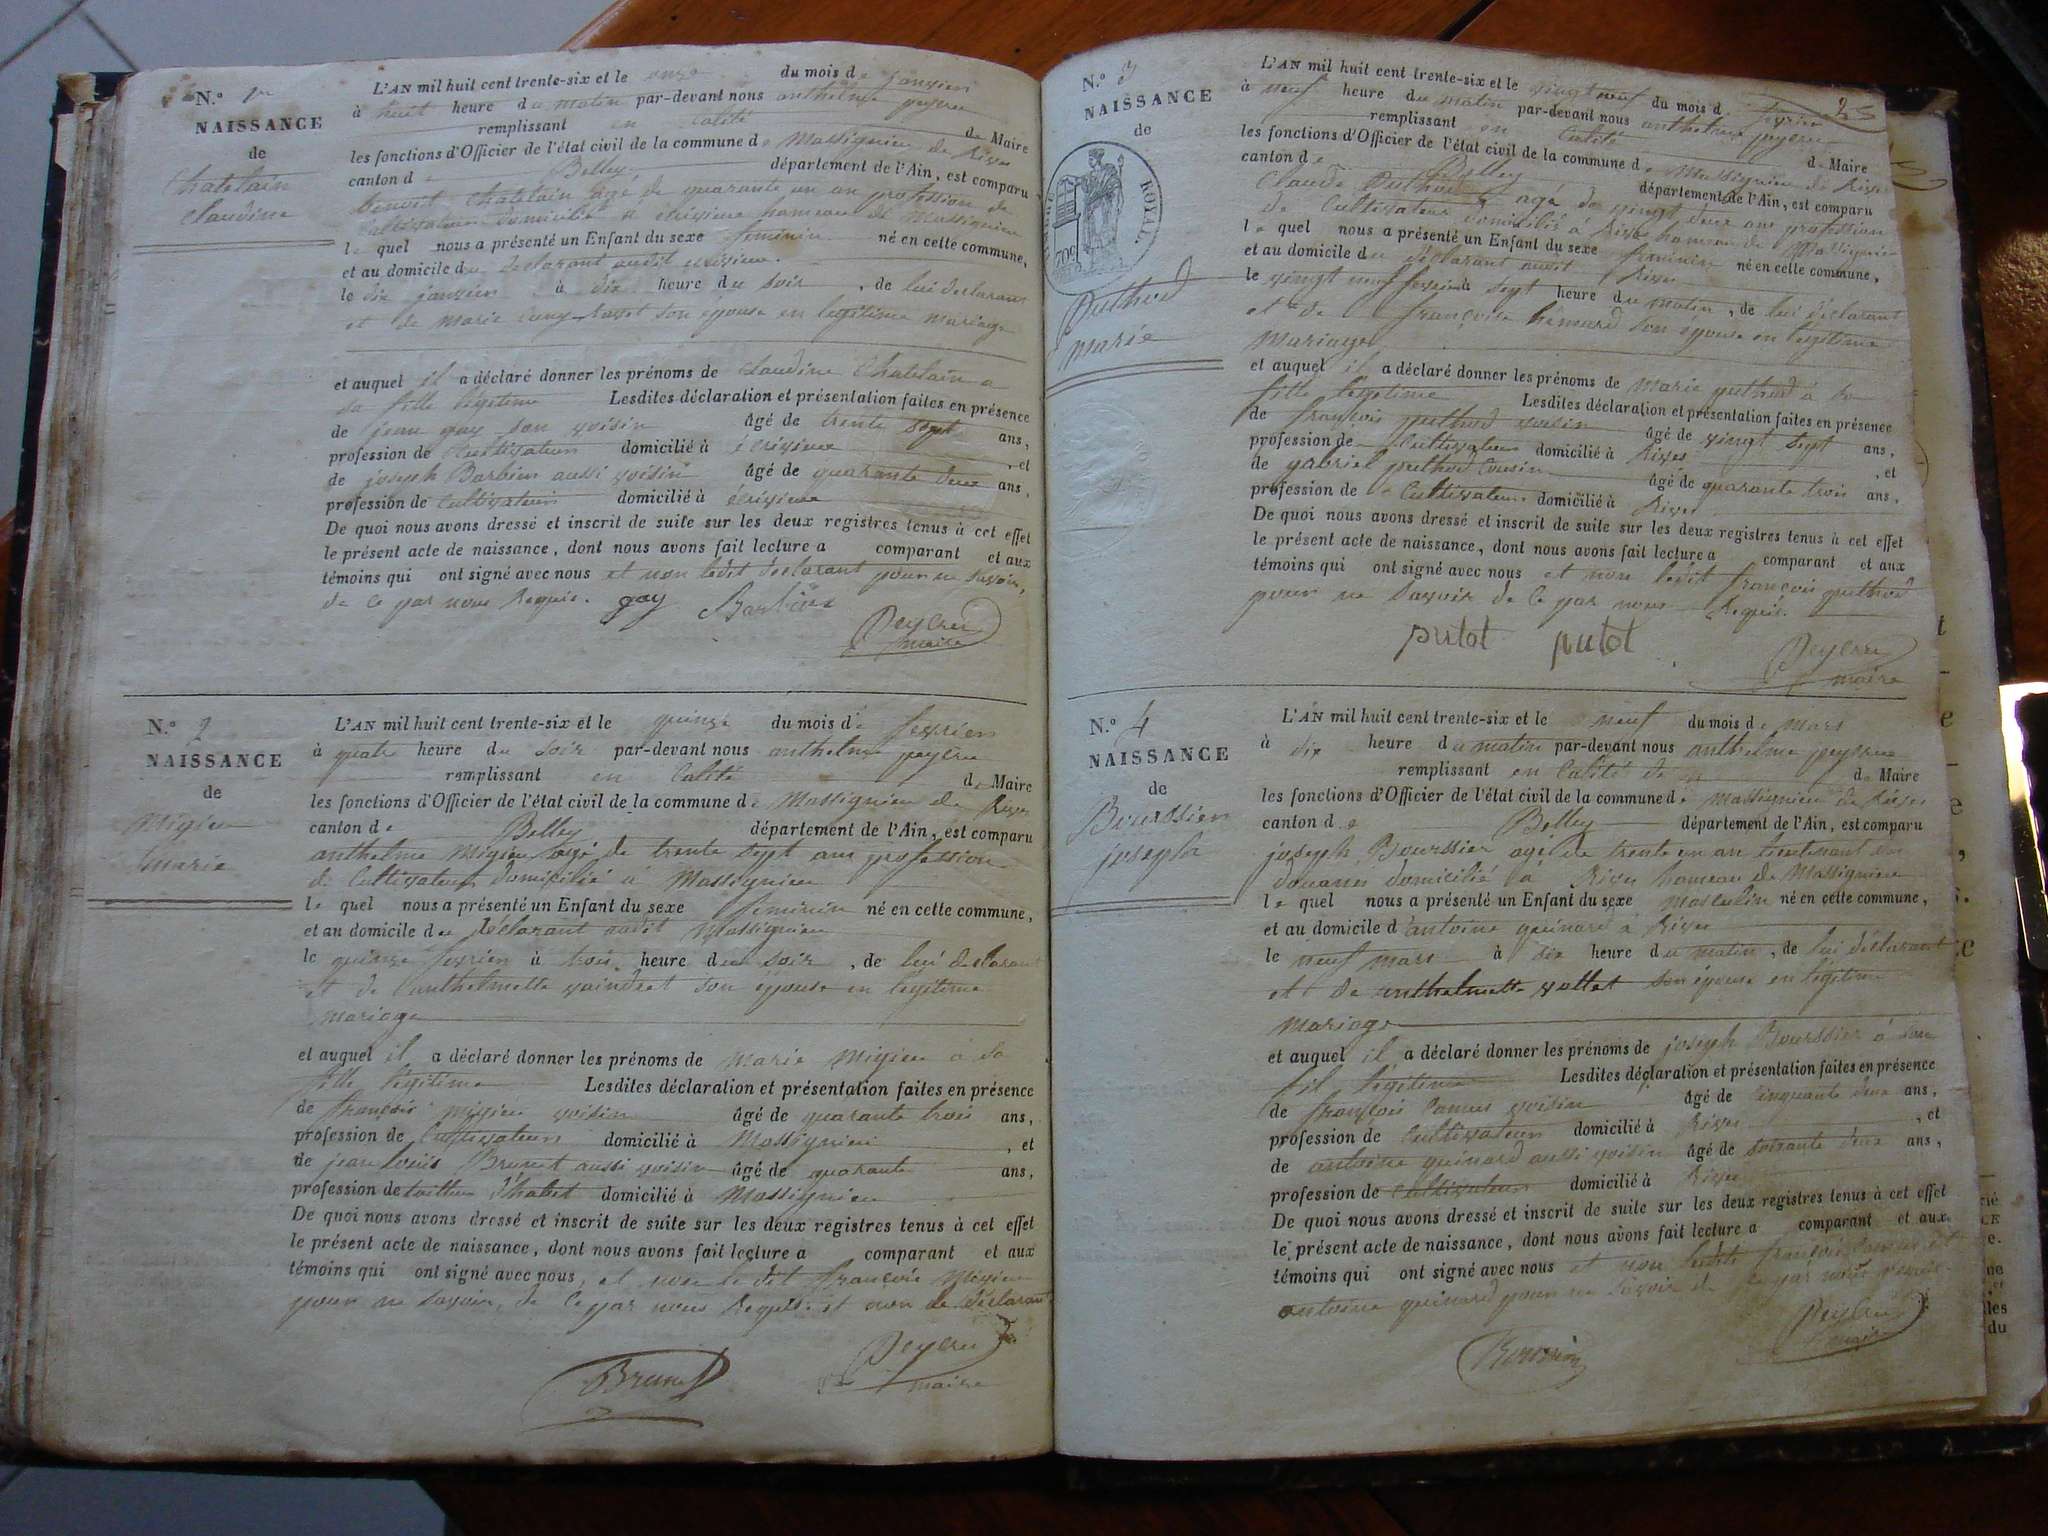 N.° 1er
NAISSANCE
de
Chatelain
Claudine
L'AN mil huit cent trente-six et le onze du mois de janvier
à huit heure du matin par-devant nous anthelme peyсru
remplissant en Calité de Maire
les fonctions d'Officier de l'état civil de la commune de Massignieu de Rives
canton de Belley département de l'Ain, est comparu
benoit Chatelain âgé de quarante un an profession de
Cultivateur domicilié à hameau de Massignieu
le quel nous a présenté un Enfant du sexe feminin né en cette commune,
et au domicile du declarant audit
le dix janvier à dix heure du soir, de lui declarant
et de Marie son epouse en legitime mariage
et auquel il a déclaré donner les prénoms de Claudine Chatelain a
sa fille legitime Lesdites déclaration et présentation faites en présence
de jean gay son voisin âgé de trente sept ans,
profession de Cultivateur domicilié à , et
de joseph Barbier aussi voisin âgé de quarante deux ans,
profession de Cultivateur domicilié à
De quoi nous avons dressé et inscrit de suite sur les deux registres tenus à cet effet
le présent acte de naissance, dont nous avons fait lecture a comparant et aux
témoins qui ont signé avec nous et non ledit declarant pour ne savoir,
de ce par nous Requis. gay Barbier
maire
N.° 2
NAISSANCE
de
Migieu
Marie
L'AN mil huit cent trente-six et le quinze du mois de fevrier
à quatre heure du soir par-devant nous anthelme
remplissant en Calité de Maire
les fonctions d'Officier de l'état civil de la commune de Massignieu de Rives
canton de Belley département de l'Ain, est comparu
anthelme Migieu agé de trente sept ans profession
de Cultivateur domicilié à Massignieu
le quel nous a présenté un Enfant du sexe feminin né en cette commune,
et au domicile du déclarant audit Massignieu
le quinze fevrier à trois heure du soir, de lui declarant
et de anthelmette son épouse en legitime
mariage
et auquel il a déclaré donner les prénoms de Marie Migieu a sa
fille légitime Lesdites déclaration et présentation faites en présence
de françois migieu voisin âgé de quarante trois ans,
profession de Cultivateur domicilié à Massignieu , et
de jean louis Brunet aussi voisin âgé de quarante ans,
profession de tailleur d'habit domicilié à Massignieu
De quoi nous avons dressé et inscrit de suite sur les deux registres tenus à cet effet
le présent acte de naissance, dont nous avons fait lecture a comparant et aux
témoins qui ont signé avec nous, et non le dit françois Migieu
pour ne savoir, de ce par nous Requis. et non le déclarant
Brunet
maire
25
N.° 3
NAISSANCE
de
ROYAL
Puthod
marie
L'AN mil huit cent trente-six et le vingt neuf du mois de fevrier
à neuf heure du matin par-devant nous anthelme
remplissant en Calité de Maire
les fonctions d'Officier de l'état civil de la commune de Massignieu de Rives
canton de Belley département de l'Ain, est comparu
Claude Puthod agé de vingt deux ans profession
de Cultivateur domicilié à Rives hameau de Massignieu
le quel nous a présenté un Enfant du sexe feminin né en cette commune,
et au domicile du déclarant audit Rives
le vingt neuf fevrier à sept heure du matin, de lui déclarant
et de françoise son epouse en legitime
Mariage
et auquel il a déclaré donner les prénoms de Marie puthod à sa
fille legitime Lesdites déclaration et présentation faites en présence
de françois puthod voisin âgé de vingt sept ans,
profession de Cultivateur domicilié à Rives , et
de gabriel puthod Cousin âgé de quarante trois ans,
profession de Cultivateur domicilié à Rives
De quoi nous avons dressé et inscrit de suite sur les deux registres tenus à cet effet
le présent acte de naissance, dont nous avons fait lecture a comparant et aux
témoins qui ont signé avec nous et non ledit françois puthod
pour ne savoir de ce par nous Requis.
putot putot
maire
N.° 4
NAISSANCE
de
Bourssier
joseph
L'AN mil huit cent trente-six et le neuf du mois de mars
à dix heure du matin par-devant nous anthelme
remplissant en Calité de de Maire
les fonctions d'Officier de l'état civil de la commune de Massignieu de Rives
canton de Belley département de l'Ain, est comparu
joseph Bourssier agé de trente un an lieutenant des
douanes domicilié à Rives hameau de Massignieu
le quel nous a présenté un Enfant du sexe Masculin né en cette commune,
et au domicile d'antoine guinard à Rives
le neuf mars à six heure du matin, de lui déclarant
et de anthelmette vallet son épouse en légitime
Mariage
et auquel il a déclaré donner les prénoms de joseph Bourssier à son
fil légitime Lesdites déclaration et présentation faites en présence
de françois Camus voisin âgé de Cinquante deux ans,
profession de Cultivateur domicilié à Rives , et
de antoine guinard aussi voisin âgé de soixante deux ans,
profession de Cultivateur domicilié à Rives
De quoi nous avons dressé et inscrit de suite sur les deux registres tenus à cet effet
le présent acte de naissance, dont nous avons fait lecture a comparant et aux
témoins qui ont signé avec nous et non françois Camus et
antoine guinard pour ne savoir de ce par nous requis.